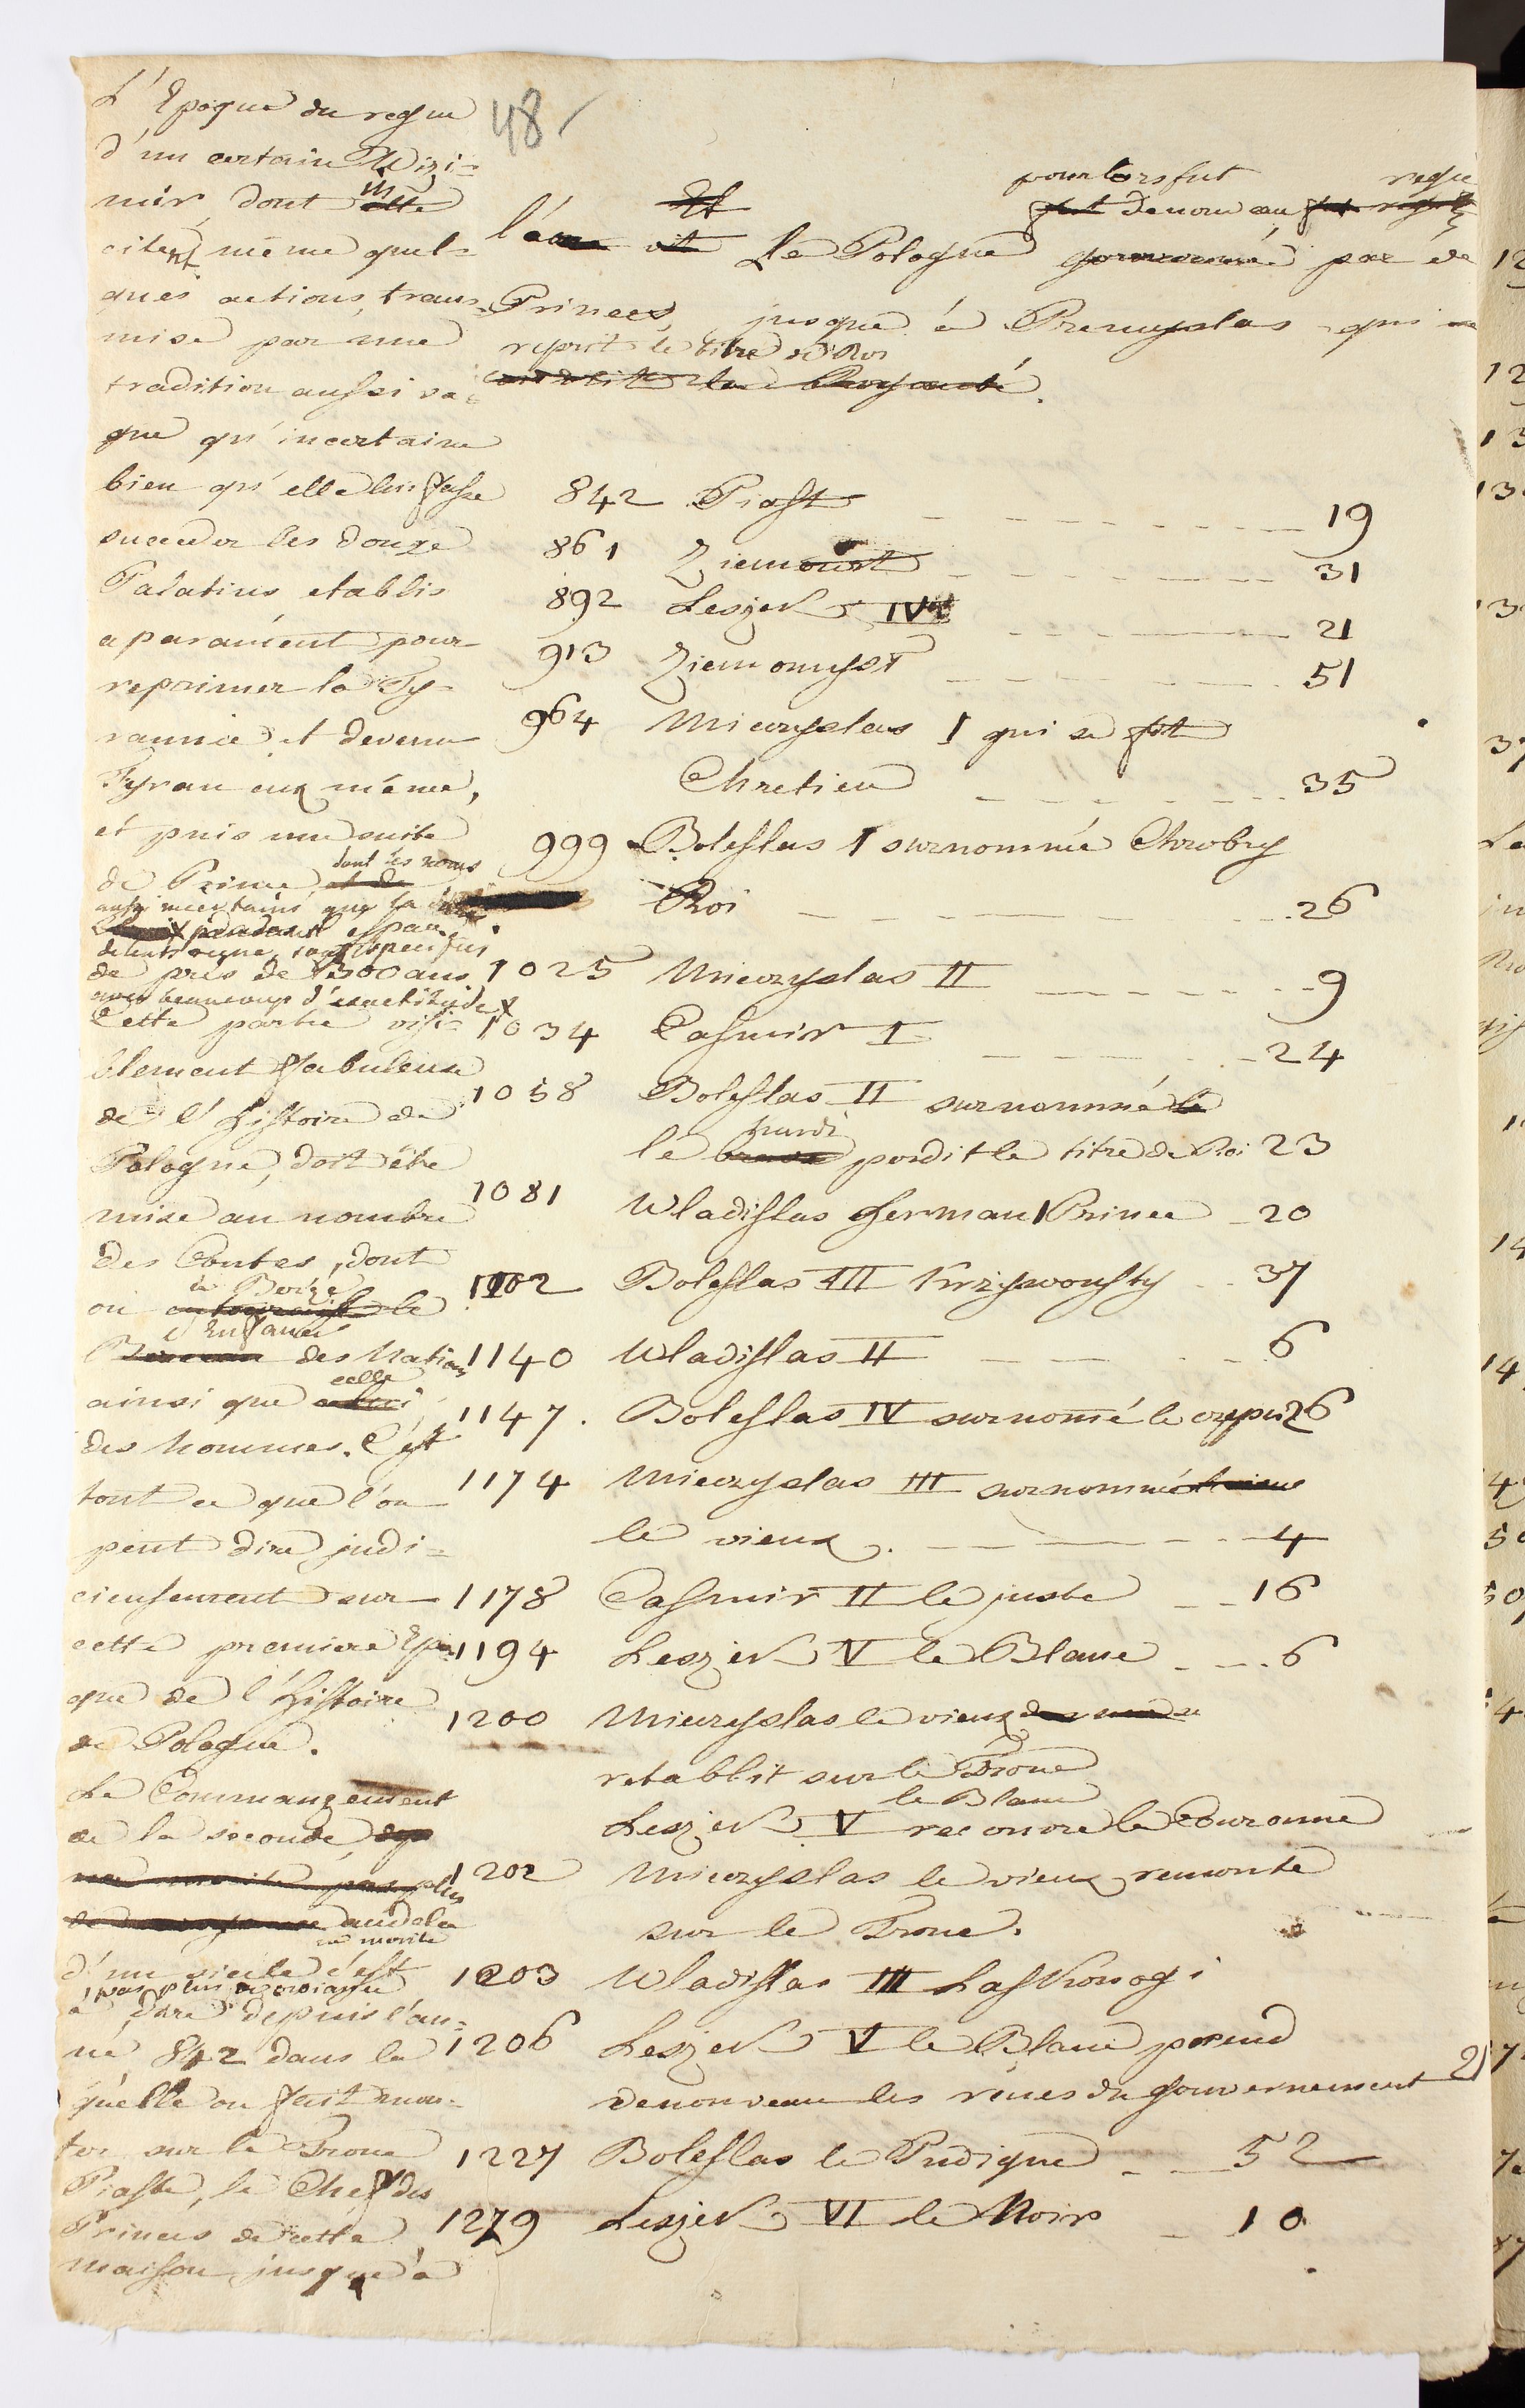 48
L'Epoque du regne
d'un certain Wizi=
mir, dont ils
citent même quel=
ques actions, trans=
mise par une
tradition aussi va=
gue qu'incertaine
bien qu'elle lui fasse
succeder les douze
Palatins etablis
aparament pour
reprimer la Ty=
rannie et devenu
Tyran eux même,
et puis une suite
de Prince, dont les noms
aussi incertains que la durée
de leurs regne, sont specifiés
de près de 300 ans
avec beaucoup d'exactitude
Cette partie visi=
blement fabuleuse
de l'Histoire de
Pologne, doit être
mise au nombre
des Contes, dont
on a Bercé
l'Enfance des Nations
ainsi que celle
des hommes. C'est
tout ce que l'on
peut dire judi=
cieusement sur
cette premiere Epo=
que de l'Histoire
de Pologne.
Le Commancement
de la seconde,
au dela
d'un siècle ne merite
pas plus de croiance c'est
à dire depuis l'an=
né 842 dans la
quelle on fait mon=
ter sur le Trone
Piaste, le Chef des
Princes de cette
maison jusque à
pour lors fut regie
La Pologne denouveau par de
Princes, jusque à Premyslas qui
reprit le titre de Roi
842 Piast 19
861 Ziemowit 31
892 Leszek IV 21
913 Ziemomysł 51
964 Mieczyslas I qui se fit
Chretien 35
999 Boleslas I surnommé Chrobry
Roi 26
1025 Mieczyslas II 9
1034 Casmir I 24
1058 Boleslas II surnommé
le hardi perdit le titre de Roi 23
1081 Wladislas Herman I Prince 20
1102 Boleslas III Krzywousty 37
1140 Wladislas II 6
1147. Boleslas IV surnomé le crepu 26
1174 Mieczyslas III surnommé
le vieux. 4
1178 Casmir II le juste 16
1194 Leszek V le Blanc 6
1200 Mieczyslas le vieux
retablit sur le Trone
Leszek V le Blanc recouvre la Couronne
1202 Mieczyslas le vieux remonte
sur le Trone.
1203 Wladislas III Laskonogi
1206 Leszek V le Blanc prend
denouveau les rénes du Gouvernement 21
1227 Boleslas le Pudique 52
1279 Leszek VI le Noir 10